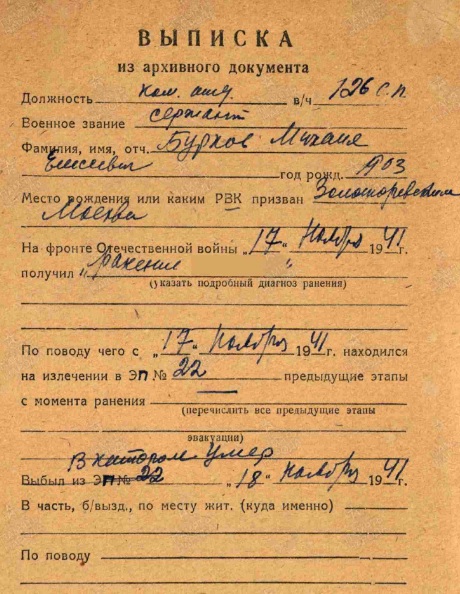 ВЫПИСКА
из архивного документа
Должность ком. отд. в/ч 126 с.п.
Военное звание сержант
Фамилия, имя, отч. Бурков Михаил
Елисеевич год рожд. 903
Место рождения или каким РВК призван
Москва
На фронте Отечественной войны „17" Ноября 1941 г.
получил „ранение "
(указать подробный диагноз ранения)
По поводу чего с „17" ноября 1941 г. находился
на излечении в ЭП № 22 предыдущие этапы
с момента ранения
(перечислить все предыдущие этапы
эвакуации)
В котором умер
Выбыл из ЭП № 22 „18" ноября 1941 г.
В часть, б/вызд., по месту жит. (куда именно)
По поводу